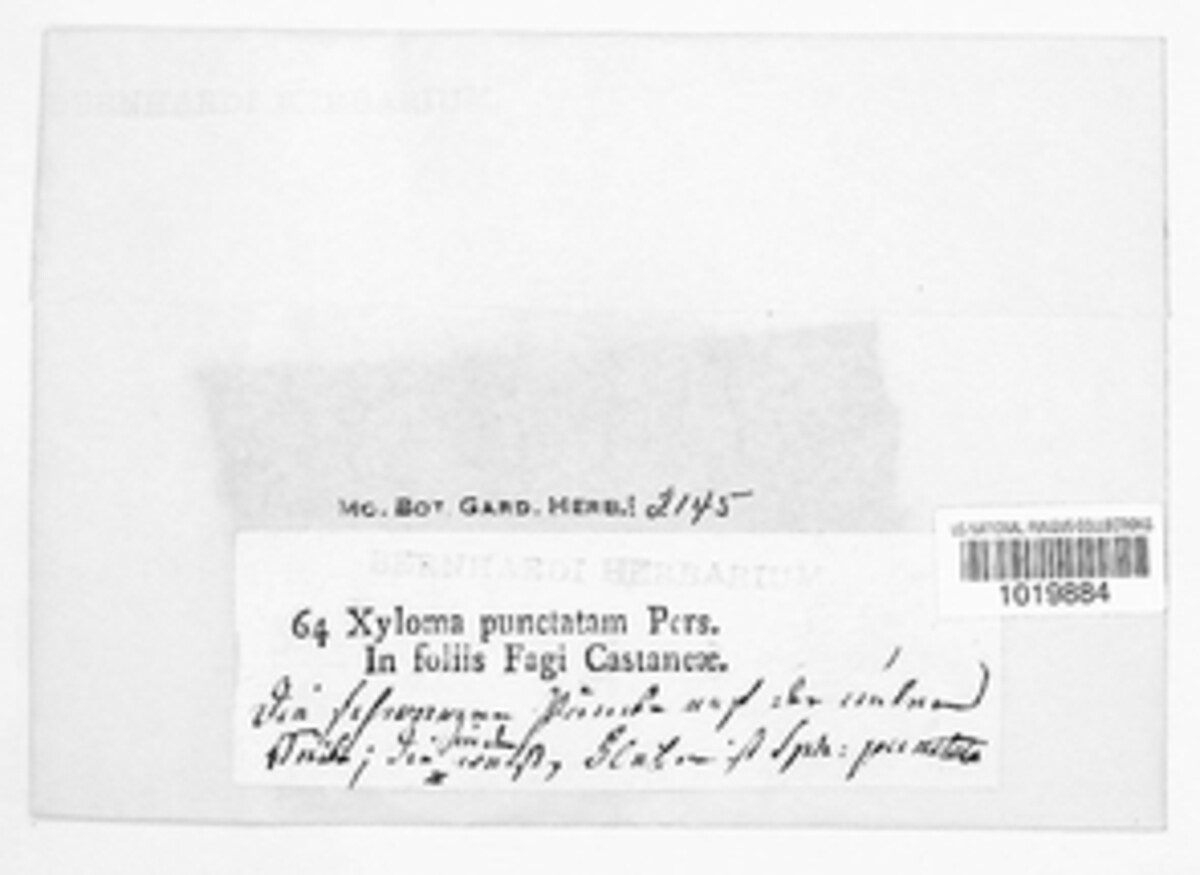 BERNHARDI HERBARIUM
MO. BOT. GARD. HERB.: 2145
US NATIONAL FUNGUS COLLECTIONS
1019884
BERNHARDI HERBARIUM
64 Xyloma punctatam Pers.
In foliis Fagi Castaneæ.
Die schwarzen Puncte auf der
die ist Sph: punctata